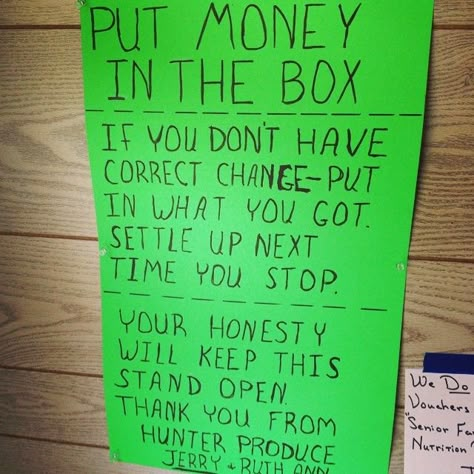 PUT MONEY
IN THE BOX
IF YOU DON'T HAVE
CORRECT CHANGE-PUT
IN WHAT YOU GOT.
SETTLE UP NEXT
TIME YOU STOP.
YOUR HONESTY
WILL KEEP THIS
STAND OPEN.
THANK YOU FROM
HUNTER PRODUCE
JERRY + RUTH ANN
WE DO
Vouchers
"Senior
Nutrition